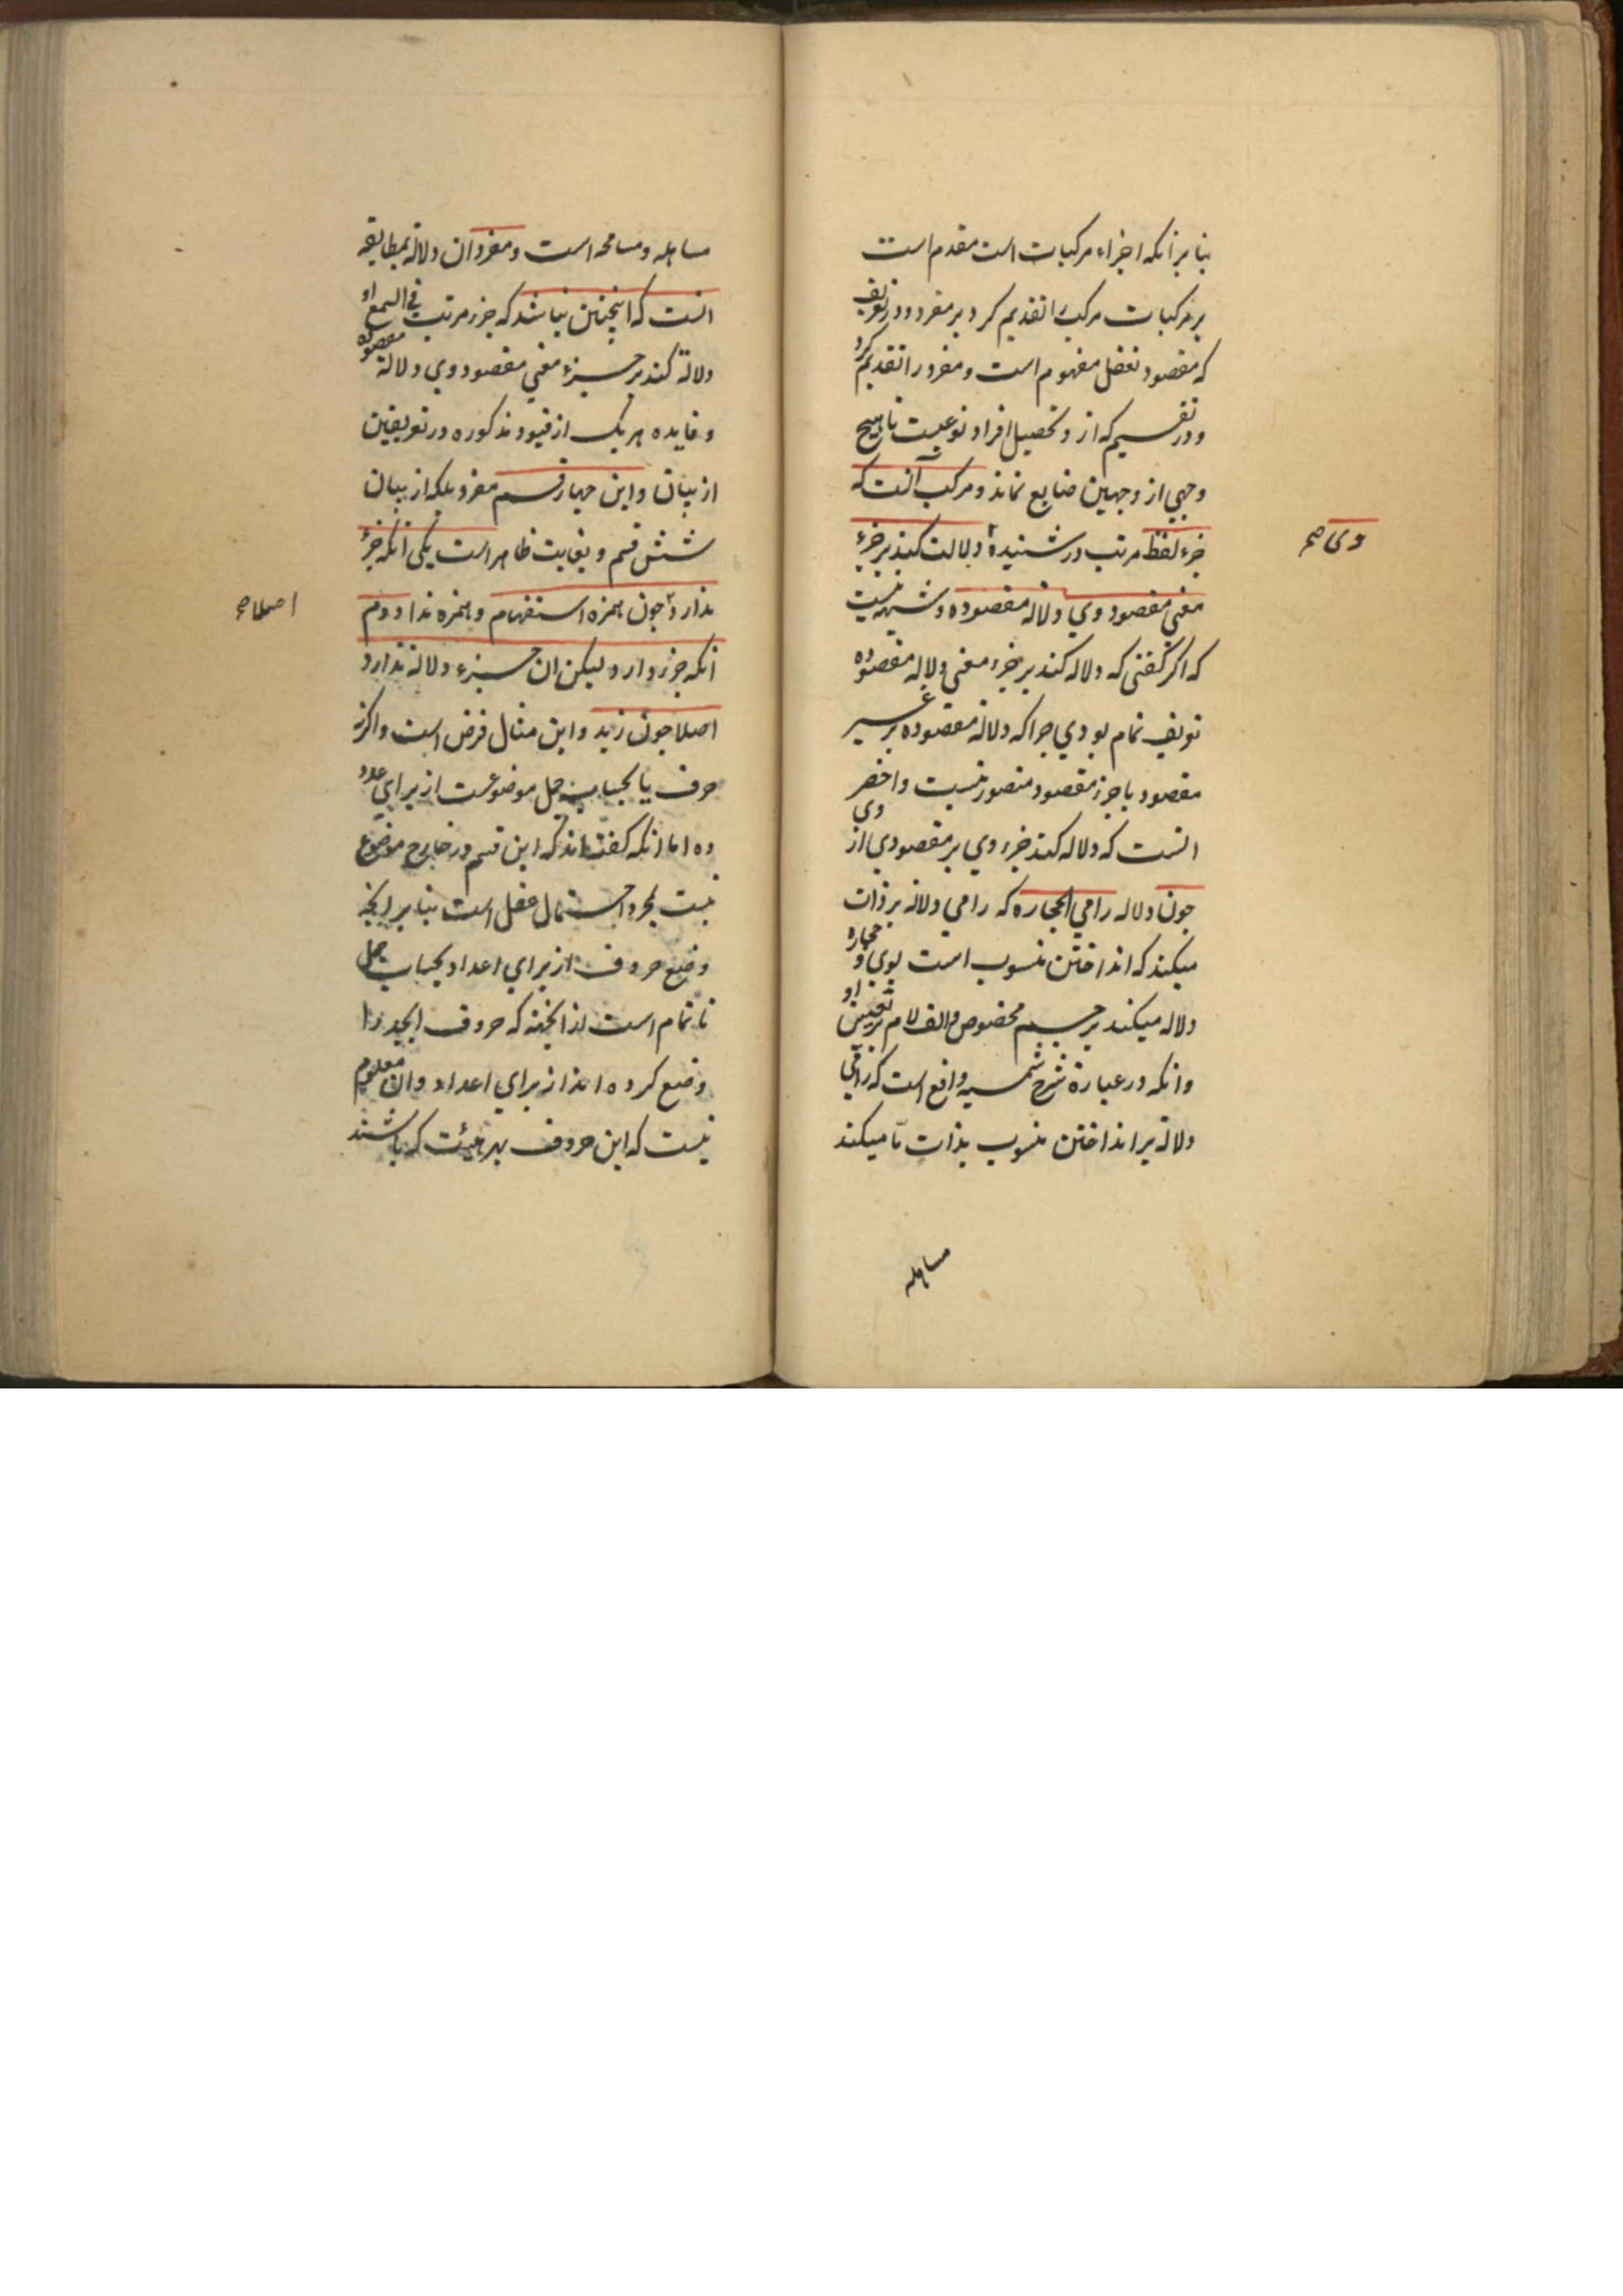 بنا بر آنکه اجزاء مرکبات است مقدم است
بر مرکبات مرکب را تقدیم کرد بر مفرد و در تعریف
که مقصود تعقل مفهوم است و مفرد را تقدیم کرد
و در تقسیم که از و تحصیل افراد نوعیست تا هیچ
وجهی از وجهین ضایع نماند و مرکب آنست که
جزء لفظ مرتب در شنیدهٔ دلالت کند بر جزء
وی صح
معنی مقصود وی دلالة مقصوده و شبهه نیست
که اگر گفتی که دلاله کند بر جزء معنی دلاله مقصوده
تعریف تمام بودی چرا که دلالة مقصوده بر غیر
مقصود یا جزء مقصود متصور نیست و اخصر
انست که دلاله کند جزء وی بر مقصودی از وی
چون دلاله رامی الحجاره که رامی دلالة بر ذات
میکند که انداختن منسوب است بوی و حجاره
دلاله میکند بر جسم مخصوص و الف لام بر تعیین او
وانکه در عبارة شرح شمسیه واقع است که رامی
دلالة بر انداختن منسوب بذات ما میکند
مساهله
مساهله و مسامحه است و مفرد ان دلالة بمطابقه
انست که اینچنین نباشد که جزء مرتب فی السمع او
دلالة کند بر جزء معنی مقصود وی دلالة مقصوده
و فایده هر یک از قیود مذکوره در تعریفین
از بیان و این چهار قسم مفرد بلکه از بیان
شش قسم و بغایت ظاهر است یکی آنکه جزء
ندارد چون همزه استفهام و همزه ندا دوم
اصطلا صح
آنکه جزء دارد لیکن ان جزء دلالة ندارد
اصلا چون زید و این مثال فرض است و اگرنه
حرف یا بحساب جمل موضوعست از برای عدد
ده اما انکه گفته‌اند که این قسم در خارج موضوع
نیست بمجرد احتمال عقل است بنا بر انچه
وضع حروف از برای اعداد بحساب جمل
ناتمام است از انچه که حروف ابجد را
وضع کرده‌اند از برای اعداد و ان معلوم
نیست که این حروف بهر هیئت که باشند